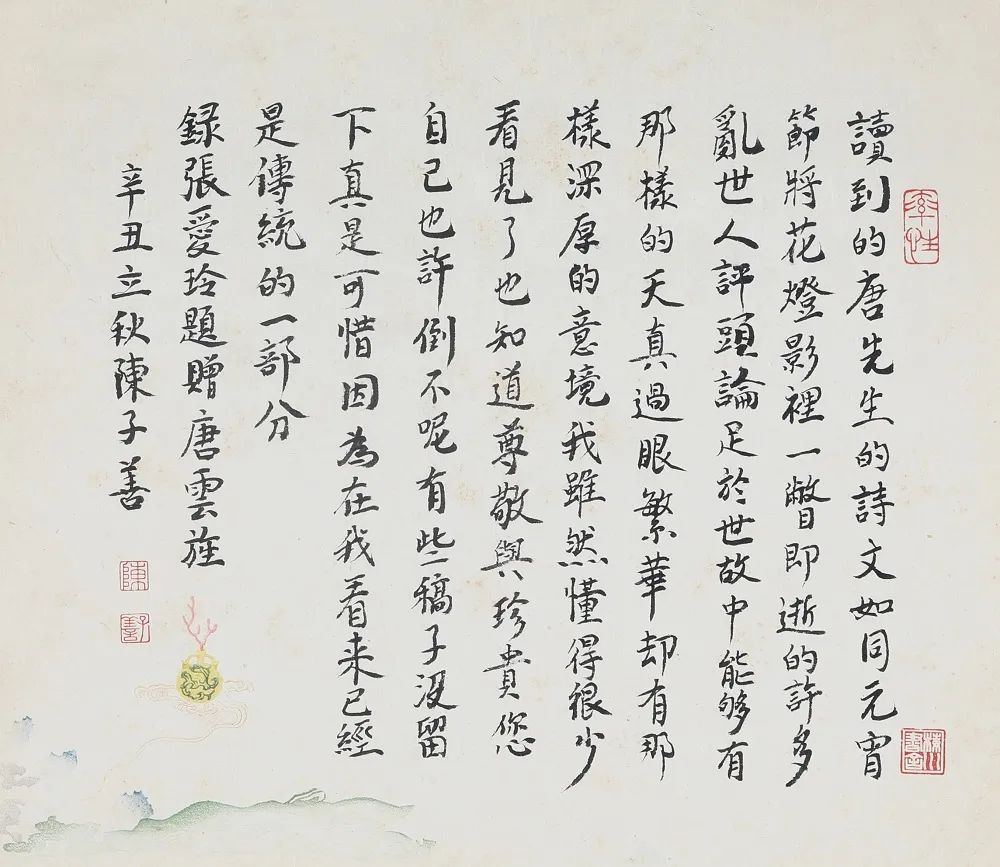 讀到的唐先生的詩文如同元宵
節將花燈影裡一瞥即逝的許多
亂世人評頭論足於世故中能够有
那樣的天真過眼繁華却有那
樣深厚的意境我雖然懂得很少
看見了也知道尊敬與珍貴您
自己也許倒不呢有些稿子沒留
下真是可惜因為在我看来已經
是傳統的一部分
録張愛玲題贈唐雲旌
辛丑立秋陳子善
率性
陳
子善